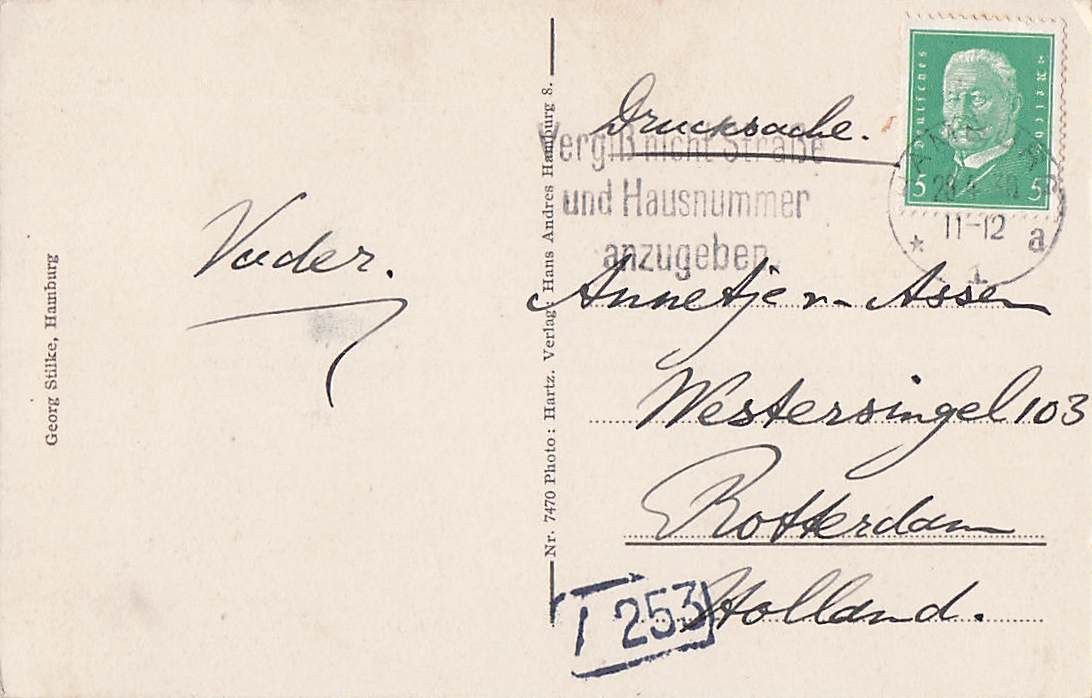 Deutsches Reich
5 5
11-12
a
1
Drucksache.
Vergiß nicht Straße
und Hausnummer
anzugeben.
Vader.
Annetje v. Assen
Westersingel 103
Rotterdam
Holland.
T 253
Georg Stilke, Hamburg
Nr. 7470 Photo: Hartz. Verlag: Hans Andres Hamburg 8.